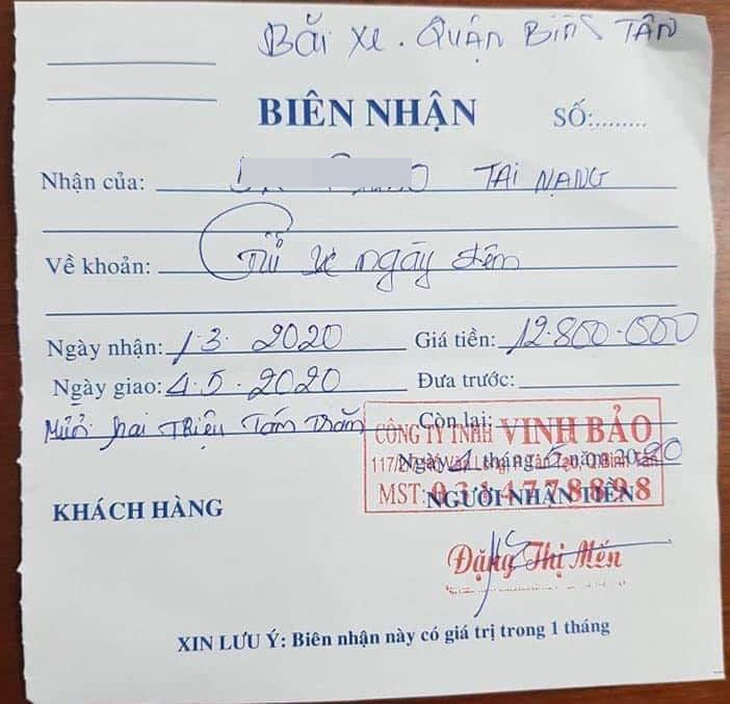 Bãi xe. Quận Bình Tân
BIÊN NHẬN
SỐ:.........
Nhận của: TAI NẠNG
Về khoản: Giữ xe ngày đêm
Ngày nhận: 1.3. 2020 Giá tiền: 12.800.000
Ngày giao: 4.5.2020 Đưa trước:
Mười hai Triệu Tám Trăm Còn lại:
CÔNG TY TNHH VINH BẢO
Ngày 4 tháng 5 năm 2020
MST:
KHÁCH HÀNG NGƯỜI NHẬN TIỀN
Đặng Thị Mến
XIN LƯU Ý: Biên nhận này có giá trị trong 1 tháng